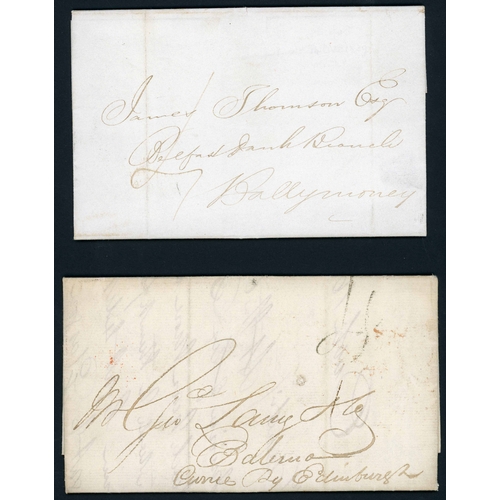 James Thomson Esq
Belfast Bank Branch
Ballymoney
Geo
Balerno
Currie by Edinburgh